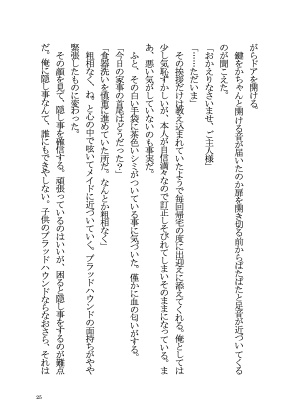 がらドアを開ける。
　鍵をかちゃんと開ける音が届いたのか扉を開き切る前からぱたぱたと足音が近づいてくる
のが聞こえた。
「おかえりなさいませ、ご主人様」
「……ただいま」
　その挨拶だけは教え込まれていたようで毎回帰宅の度に出迎えに添えてくれる。俺としては
少し気恥ずかしいが、本人が自信満々なので訂正しそびれてしまいそのままになっている。ま
あ、悪い気がしていないのも事実だ。
　ふと、その白い手袋に茶色いシミがついている事に気づいた。僅かに血の匂いがする。
「今日の家事の首尾はどうだった？」
「食器洗いを慎重に進めていた所だ。なんとか粗相なく」
　粗相なく、ね。と心の中で呟いてメイドに近づいていく。ブラッドハウンドの面持ちがやや
緊張したものに変わった。
　その顔を見て、隠し事を確信する。頑張っているのはいいが、困ると隠し事をするのが難点
だ。俺に隠し事なんて、誰にもできやしない。子供のブラッドハウンドならなおさら、それは
25